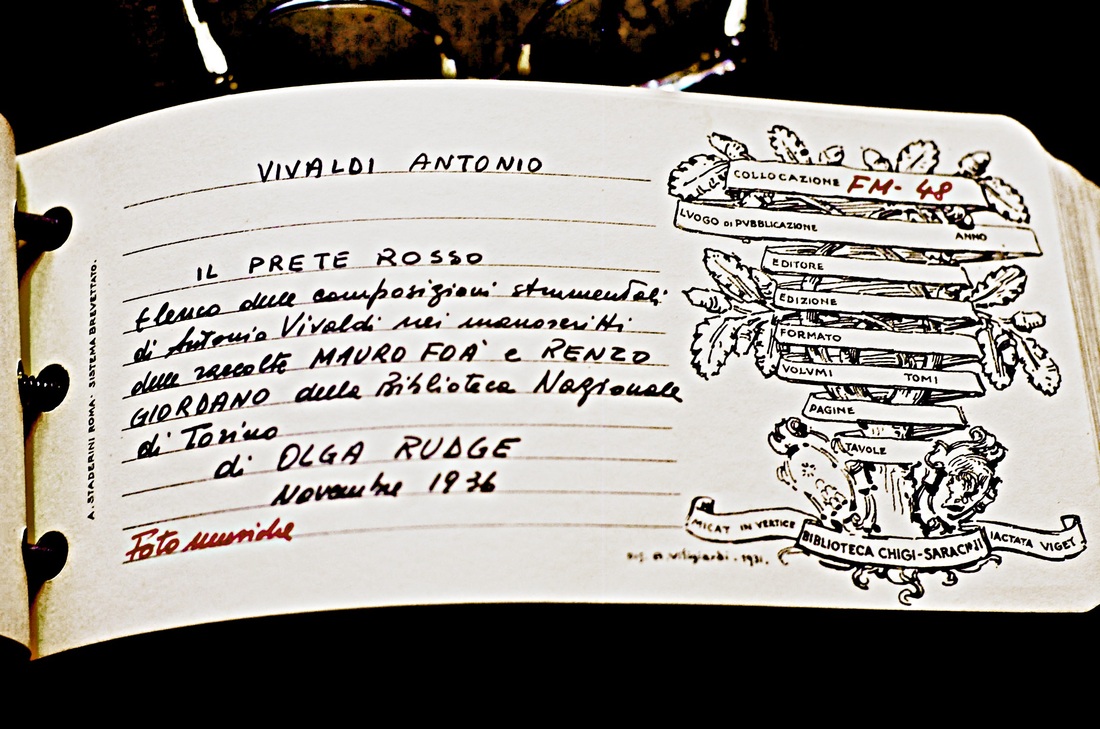 VIVALDI ANTONIO
IL PRETE ROSSO
Elenco delle composizioni strumentali
di Antonio Vivaldi nei manoscritti
delle raccolte MAURO FOA' e RENZO
GIORDANO della Biblioteca Nazionale
di Torino
di OLGA RUDGE
Novembre 1936
Foto musiche
A. STADERINI ROMA · SISTEMA BREVETTATO.
COLLOCAZIONE FM-48
LVOGO DI PVBBLICAZIONE ANNO
EDITORE
EDIZIONE
FORMATO
VOLVMI TOMI
PAGINE
TAVOLE
MICAT IN VERTICE
BIBLIOTECA CHIGI-SARACINI
IACTATA VIGET
1931.